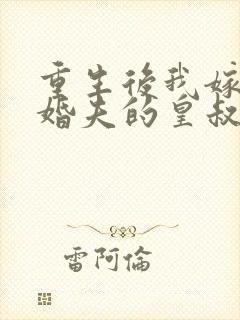 重生後我嫁
婚夫的皇叔
雷阿倫